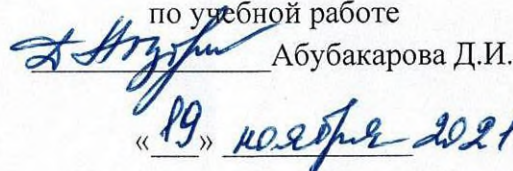 по учебной работе
Абубакарова Д.И.
«19» ноября 2021